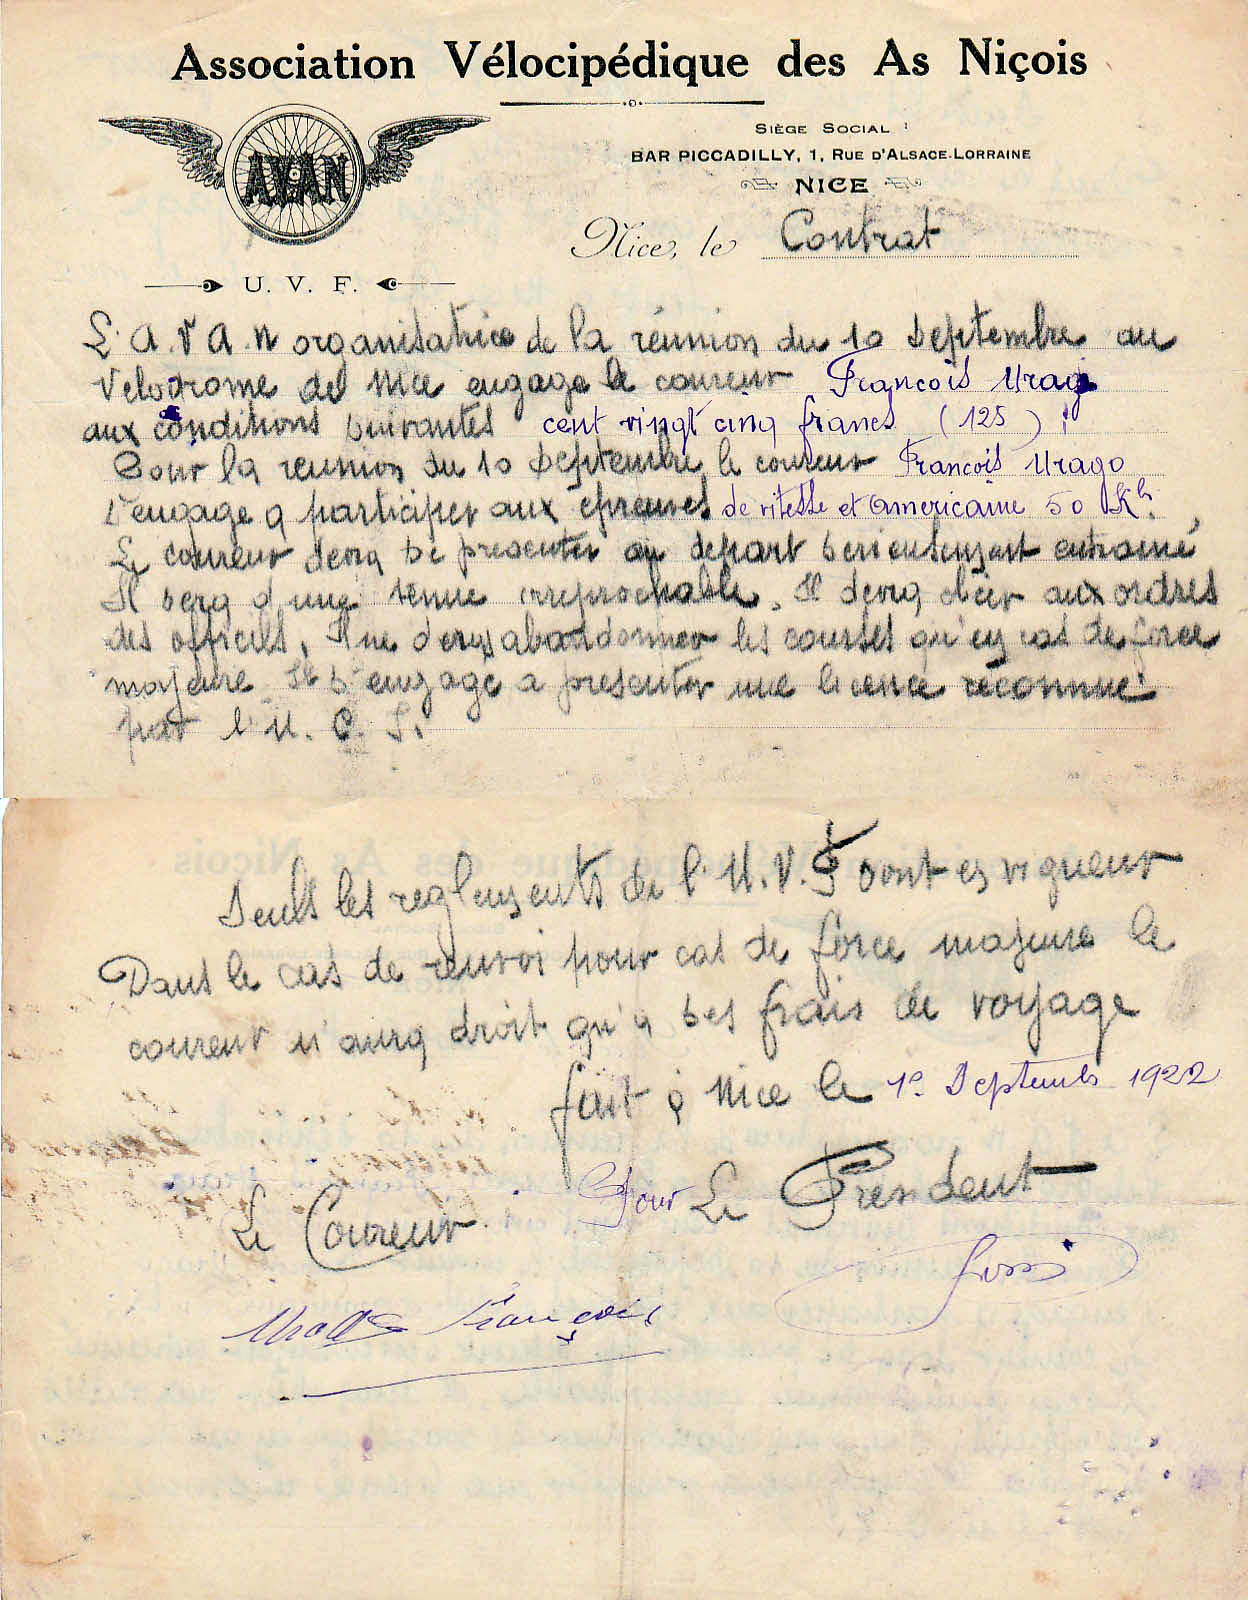 Association Vélocipédique des As Niçois
SIÈGE SOCIAL :
BAR PICCADILLY, 1, RUE D'ALSACE-LORRAINE
NICE
AVAN
Nice, le Contrat
U. V. F.
L'A.V.A.N organisatrice de la réunion du 10 Septembre au
Velodrome de Nice engage le coureur Francois Urago
aux conditions suivantes cent vingt cinq francs (125) :
Pour la reunion du 10 Septembre le coureur Francois Urago
s'engage a participer aux epreuves de vitesse et americaine 50 K.
Le coureur devra se presenter au depart serieusement entrainé
Il sera d'une tenue irreprochable. Il devra obeir aux ordres
des officiels. Il ne devra abandonner les courses qu'en cas de force
majeure Il s'engage a presenter une licence reconnue
par l'U. C. I.
Seuls les reglements de l'U.V.F sont en vigueur
Dans le cas de renvoi pour cas de force majeure le
coureur n'aura droit qu'a ses frais de voyage
fait a Nice le 1er Septembre 1922
Le Coureur Pour Le President
François